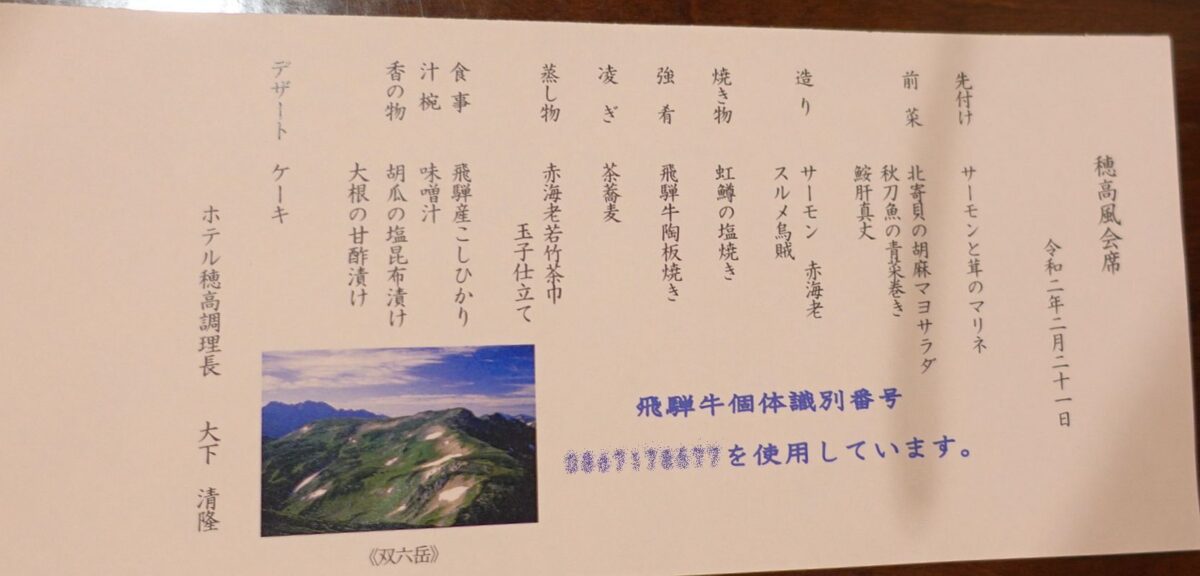 穂高風会席
令和二年二月二十一日
先付け サーモンと茸のマリネ
前菜 北寄貝の胡麻マヨサラダ
秋刀魚の青菜巻き
鮟肝真丈
造り サーモン 赤海老
スルメ烏賊
焼き物 虹鱒の塩焼き
強肴 飛騨牛陶板焼き
凌ぎ 茶蕎麦
蒸し物 赤海老若竹茶巾
玉子仕立て
食事 飛騨産こしひかり
汁椀 味噌汁
香の物 胡瓜の塩昆布漬け
大根の甘酢漬け
デザート ケーキ
ホテル穂高調理長 大下 清隆
飛騨牛個体識別番号
を使用しています。
《双六岳》